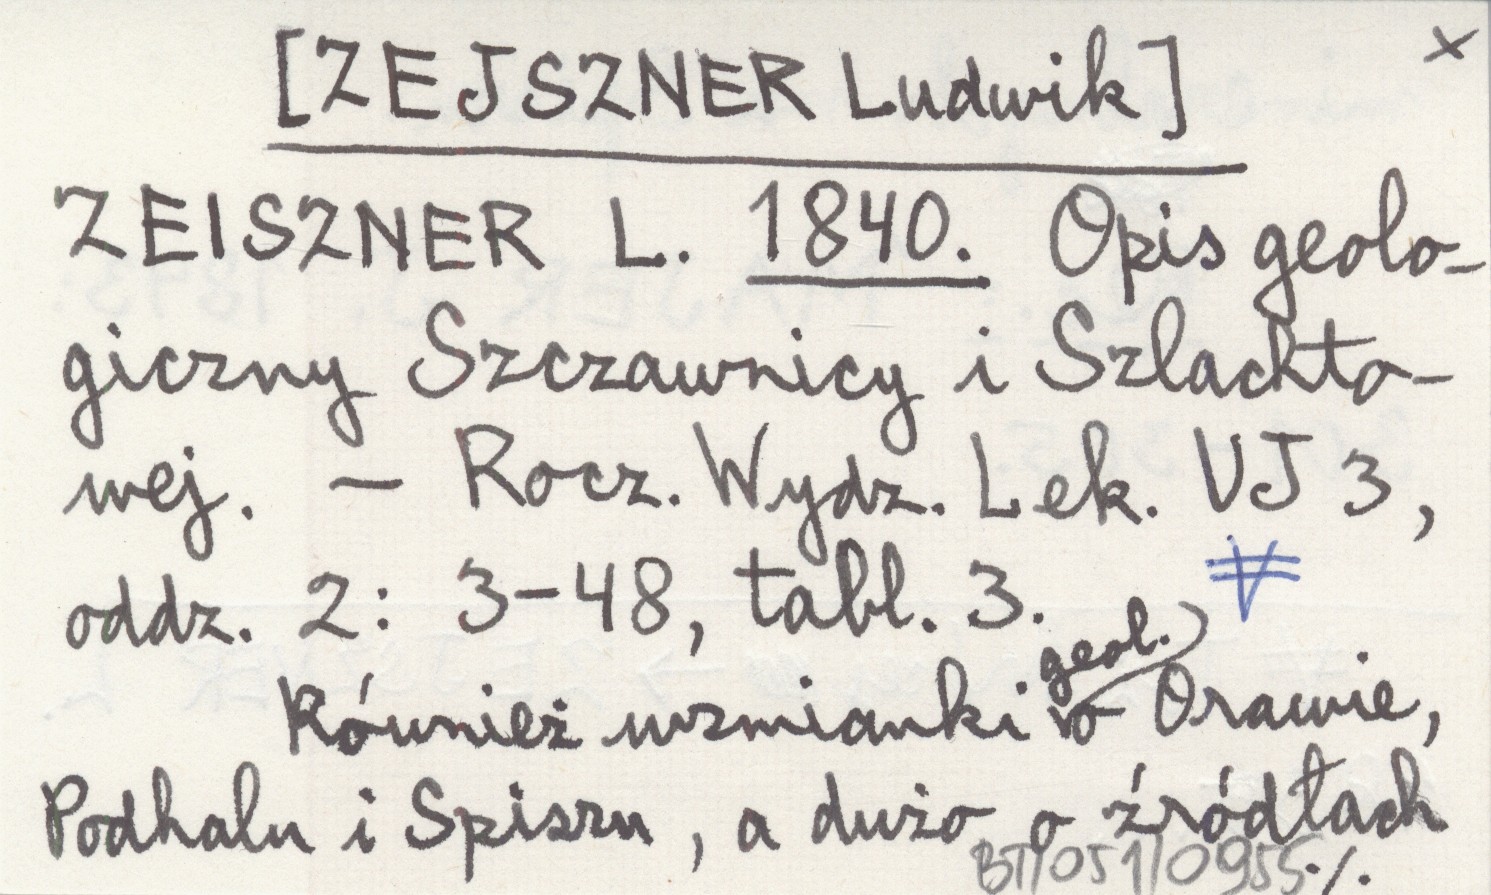 [ZEJSZNER Ludwik] x
ZEISZNER L. 1840. Opis geolo-
giczny Szczawnicy i Szlachto-
wej. — Rocz. Wydz. Lek. UJ 3,
oddz. 2: 3-48, tabl. 3.
geol.
Również wzmianki o Orawie,
Podhalu i Spiszu, a dużo o źródłach
BT/051/0955 ./.